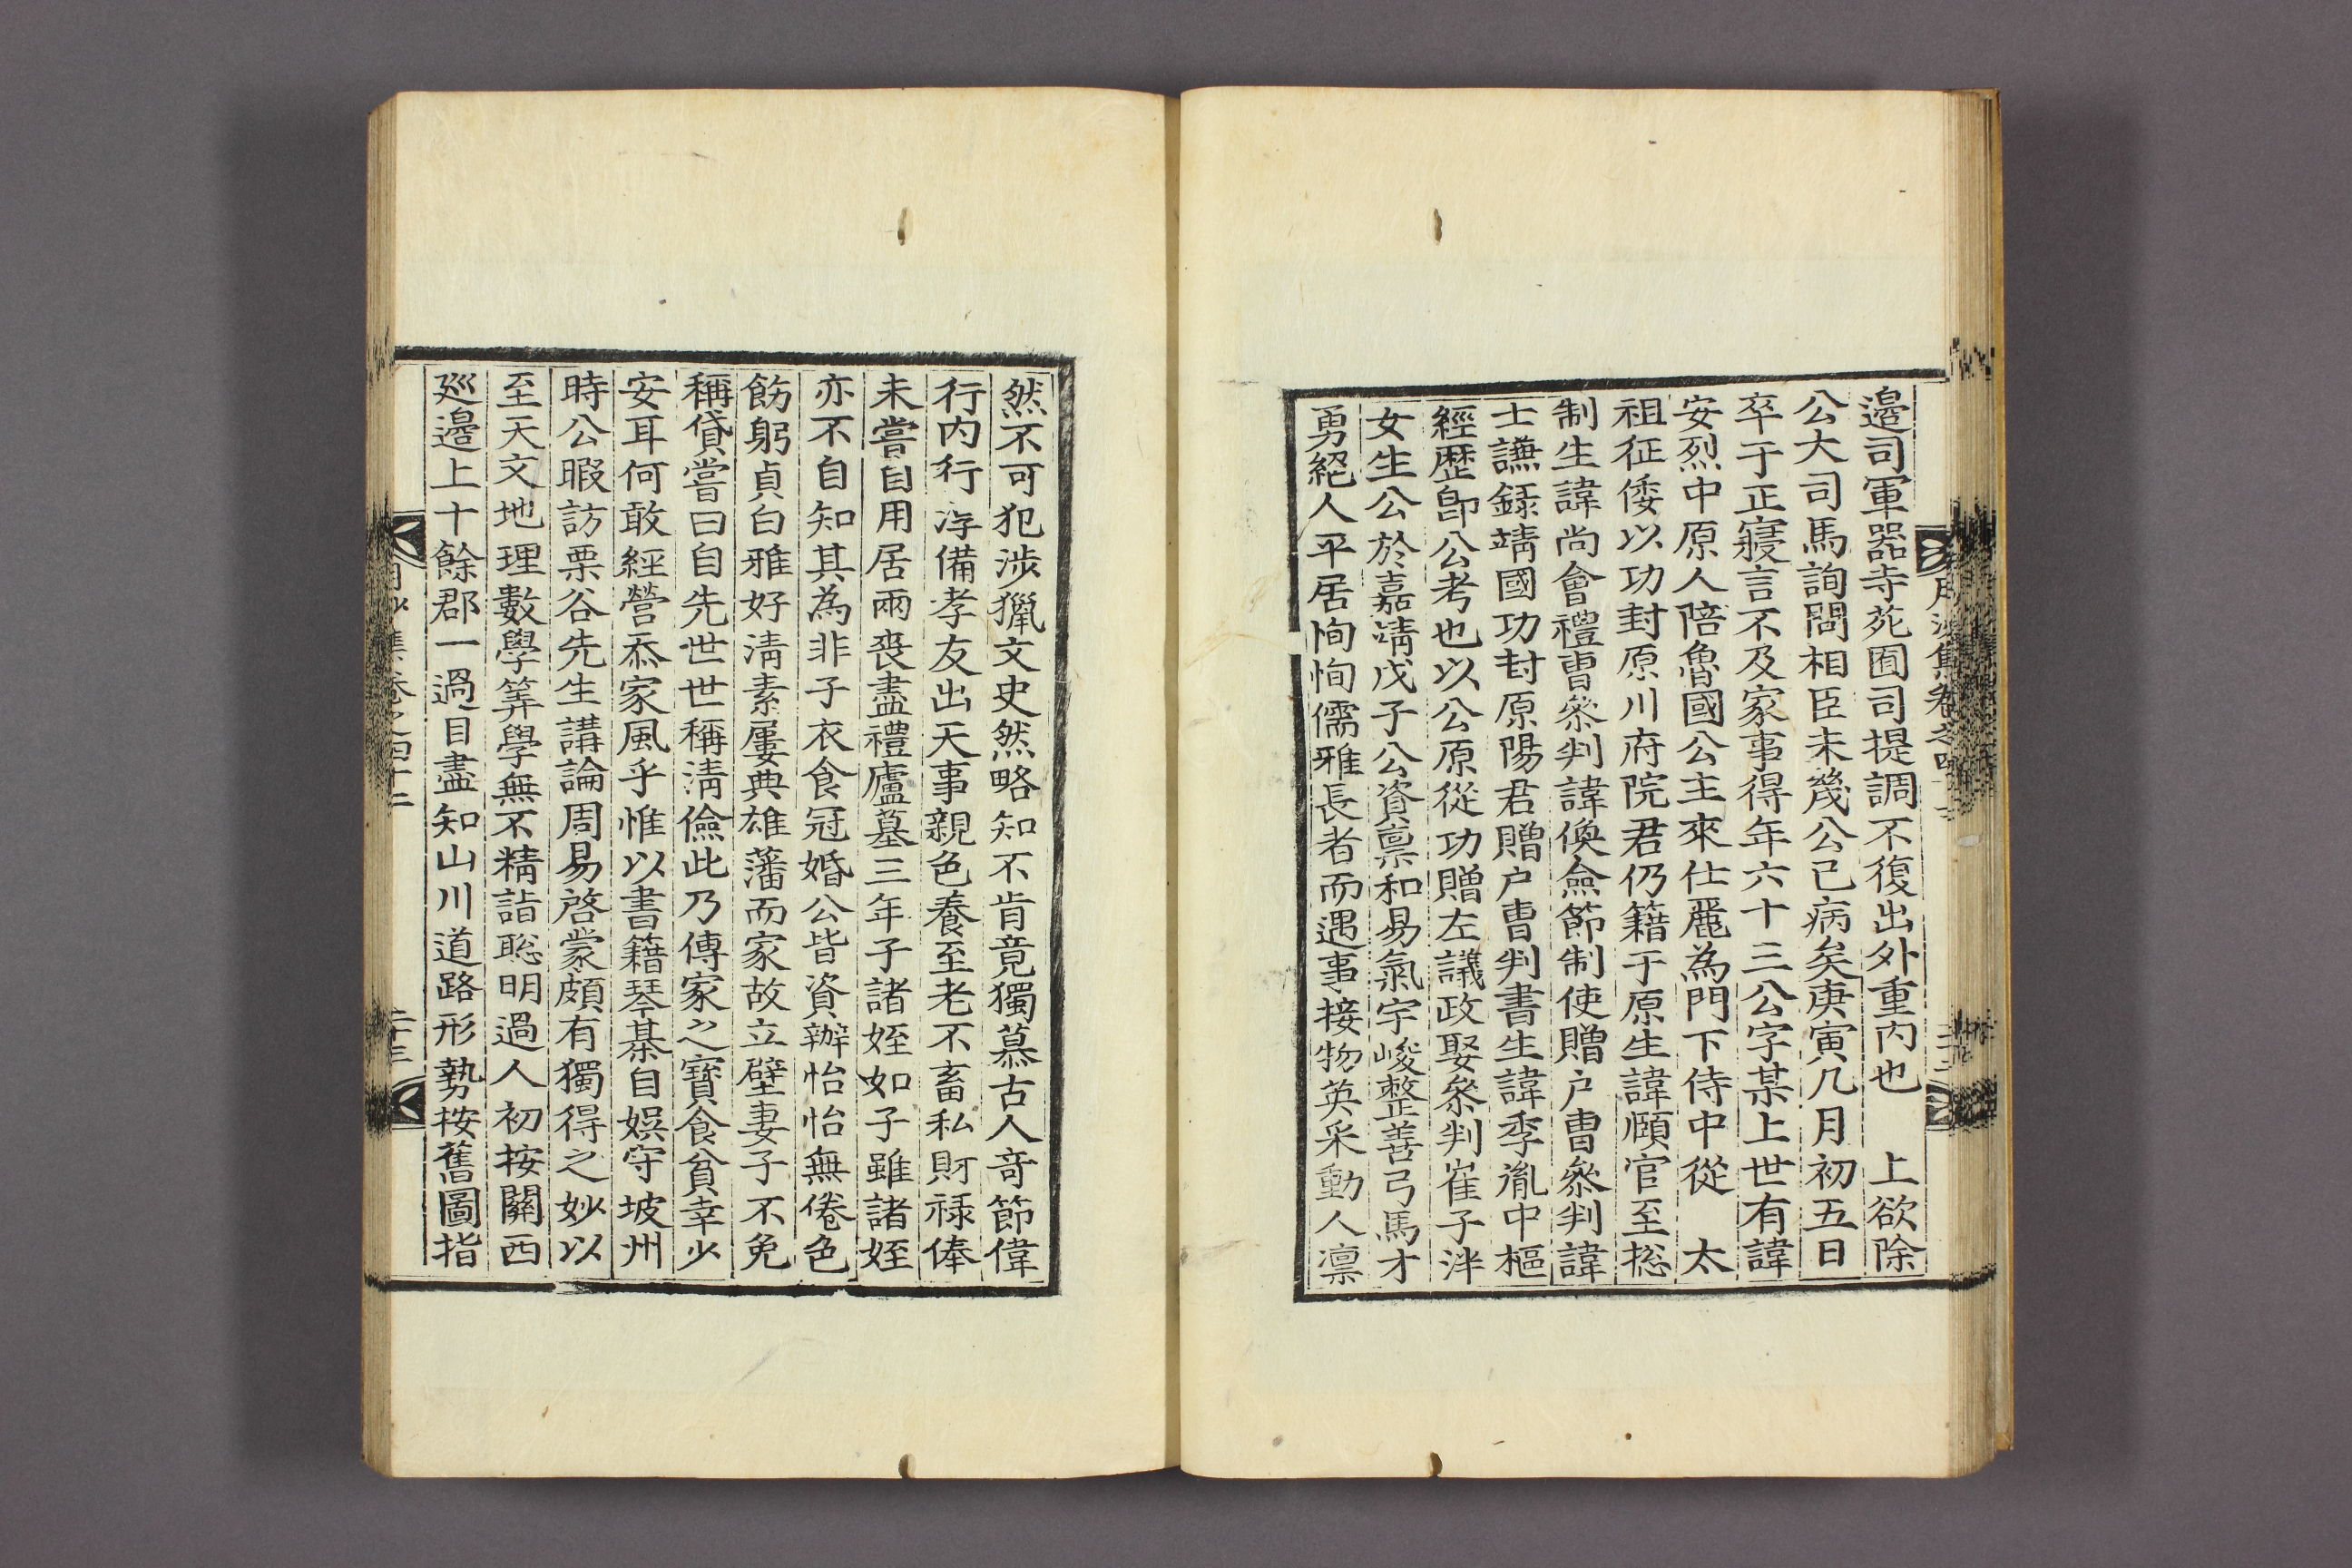 邉司軍器寺苑囿司提調不復出外重内也　上欲除
公大司馬詢問相臣未幾公已病矣庚寅八月初五日
卒于正寢言不及家事得年六十三公字某上世有諱
安烈中原人陪魯國公主來仕麗為門下侍中從　太
祖征倭以功封原川府院君仍籍于原生諱頤官至摠
制生諱尚會禮曺叅判諱倹僉節制使贈户曺叅判諱
士謙録靖國功封原陽君贈户曺判書生諱季胤中樞
經歴卽公考也以公原從功贈左議政娶叅判崔子泮
女生公於嘉靖戊子公資禀和易氣宇峻整善弓馬才
勇絕人平居恂恂儒雅長者而遇事接物英采動人凛
然不可犯涉獵文史然略知不肯竟獨慕古人竒節偉
行内行淳備孝友出天事親色養至老不畜私財禄俸
未嘗自用居兩喪盡禮廬墓三年子諸姪如子雖諸姪
亦不自知其為非子衣食冠婚公皆資辦怡怡無倦色
飭躬貞白雅好淸素屢典雄藩而家故立壁妻子不免
稱貸嘗曰自先世世稱淸儉此乃傳家之寳食貧幸少
安耳何敢經營忝家風乎惟以書籍琴棊自娱守坡州
時公暇訪栗谷先生講論周易啓蒙頗有獨得之妙以
至天文地理數學筭學無不精詣聡明過人初按關西
廵邉上十餘郡一過目盡知山川道路形勢按舊圖指
月沙集卷之四十二
二十三